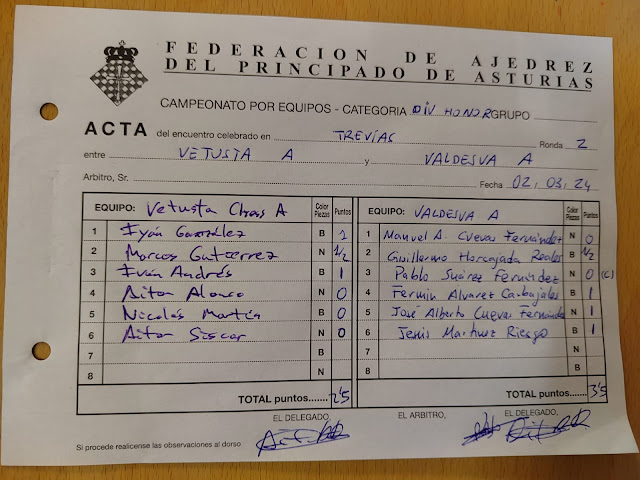 FEDERACION DE AJEDREZ
DEL PRINCIPADO DE ASTURIAS
CAMPEONATO POR EQUIPOS - CATEGORIA DIV HONOR GRUPO
ACTA del encuentro celebrado en TREVÍAS Ronda 2
entre VETUSTA A y VALDESVA A
Arbitro, Sr. Fecha 02, 03, 24
EQUIPO: Vetusta Chess A Color Piezas Puntos EQUIPO: VALDESVA A Color Piezas Puntos
1 Iyán González B 1 1 Manuel A. Cuevas Fernández N 0
2 Marcos Gutierrez N 1/2 2 Guillermo Horcajada Reales B 1/2
3 Iván Andrés B 1 3 Pablo Suárez Fernández N 0 (c)
4 Aitor Alonso N 0 4 Fermín Álvarez Carbajales B 1
5 Nicolás Martín B 0 5 José Alberto Cuevas Fernández N 1
6 Aitor Siscar N 0 6 Jesús Martínez Riesgo B 1
7 B 7 N
8 N 8 B
TOTAL puntos....... 2'5 TOTAL puntos....... 3'5
EL DELEGADO, EL ARBITRO, EL DELEGADO,
Si procede realicense las observaciones al dorso